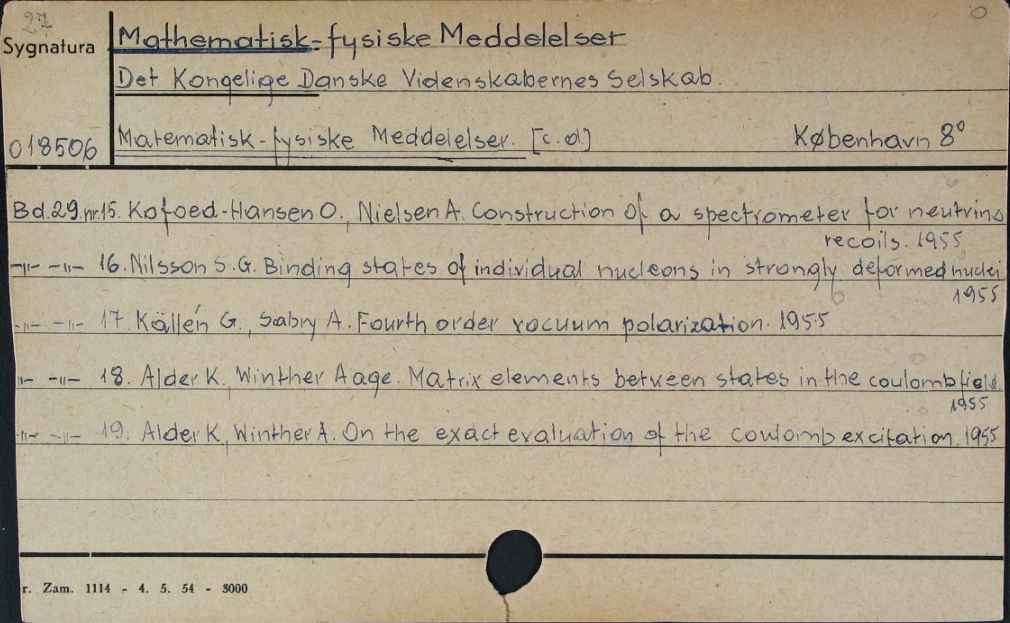 27
Sygnatura
Mathematisk-fysiske Meddelelser
Det Kongelige Danske Videnskabernes Selskab.
018506
Matematisk-fysiske Meddelelser. [c.d.] København 8°
Bd.29.nr.15. Kofoed-Hansen O., Nielsen A. Construction of a spectrometer for neutrino
recoils. 1955
-"- -"- 16. Nilsson S.G. Binding states of individual nucleons in strongly deformed nuclei
1955
-"- -"- 17. Källén G., Sabry A. Fourth order vacuum polarization. 1955
-"- -"- 18. Alder K., Winther Aage. Matrix elements between states in the coulomb field.
1955
-"- -"- 19. Alder K., Winther A. On the exact evaluation of the coulomb excitation. 1955
r. Zam. 1114 - 4. 5. 54 - 3000